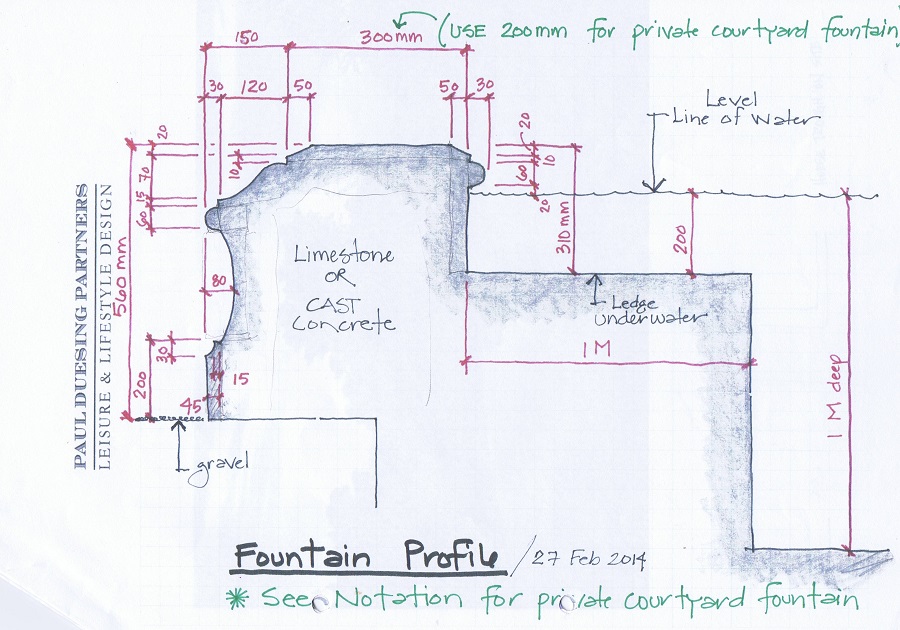 (USE 200mm for private courtyard fountain)
150
300mm
30
120
50
50
30
20
20
10
10
60
20
70
15
60
560mm
80
30
200
15
45
310mm
200
1M
1M deep
Level
Line of Water
Limestone
OR
CAST
Concrete
Ledge
underwater
gravel
PAUL DUESING PARTNERS
LEISURE & LIFESTYLE DESIGN
Fountain Profile / 27 Feb 2014
* See Notation for private courtyard fountain